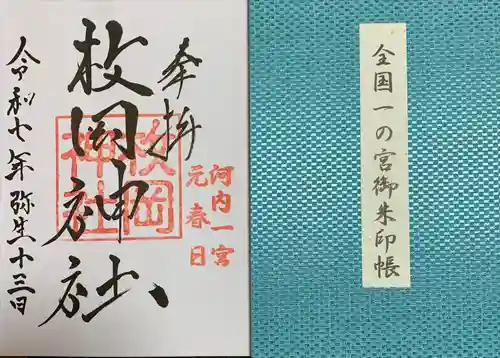 奉拝
河内一宮
元春日
枚岡神社
枚岡神社
令和七年弥生十三日
全国一の宮御朱印帳